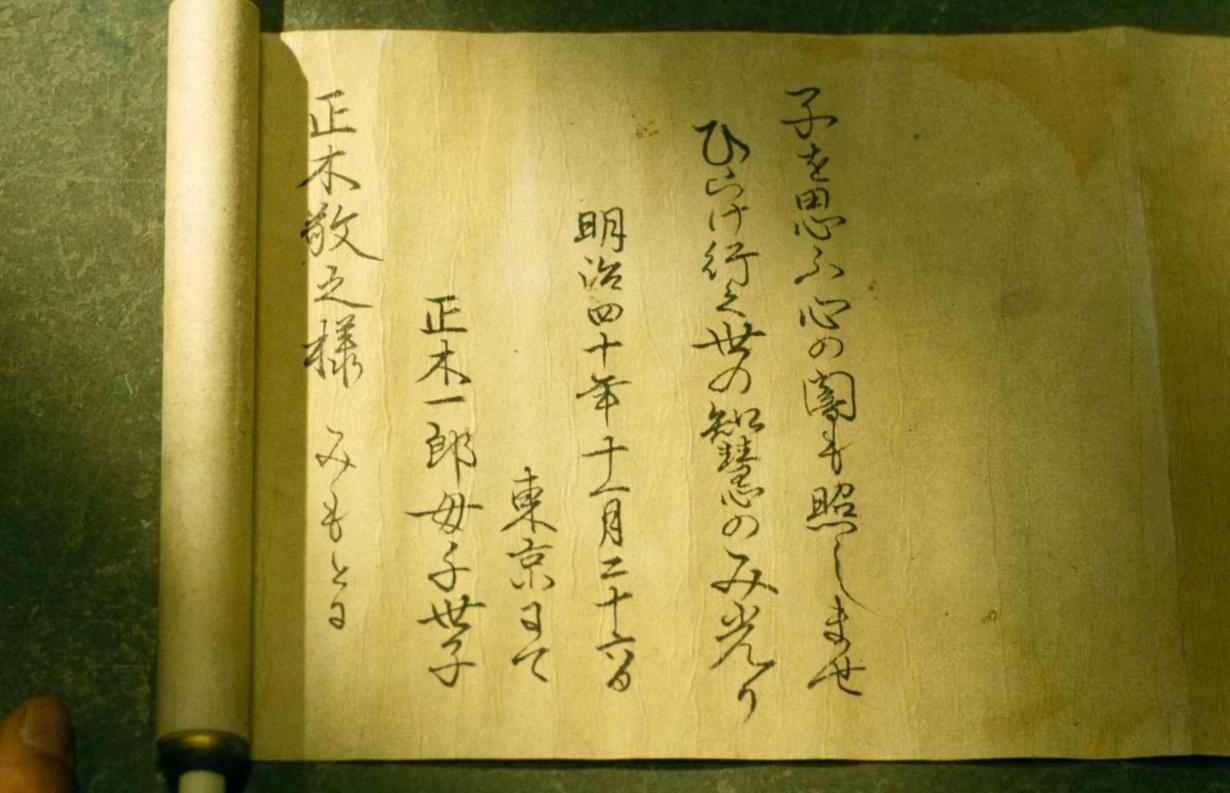 子を思ふ心の闇も照しませ
ひらけ行く世の智慧のみ光り
明治四十年十一月二十六日
東京にて
正木一郎母千世子
正木敬之様 みもとに